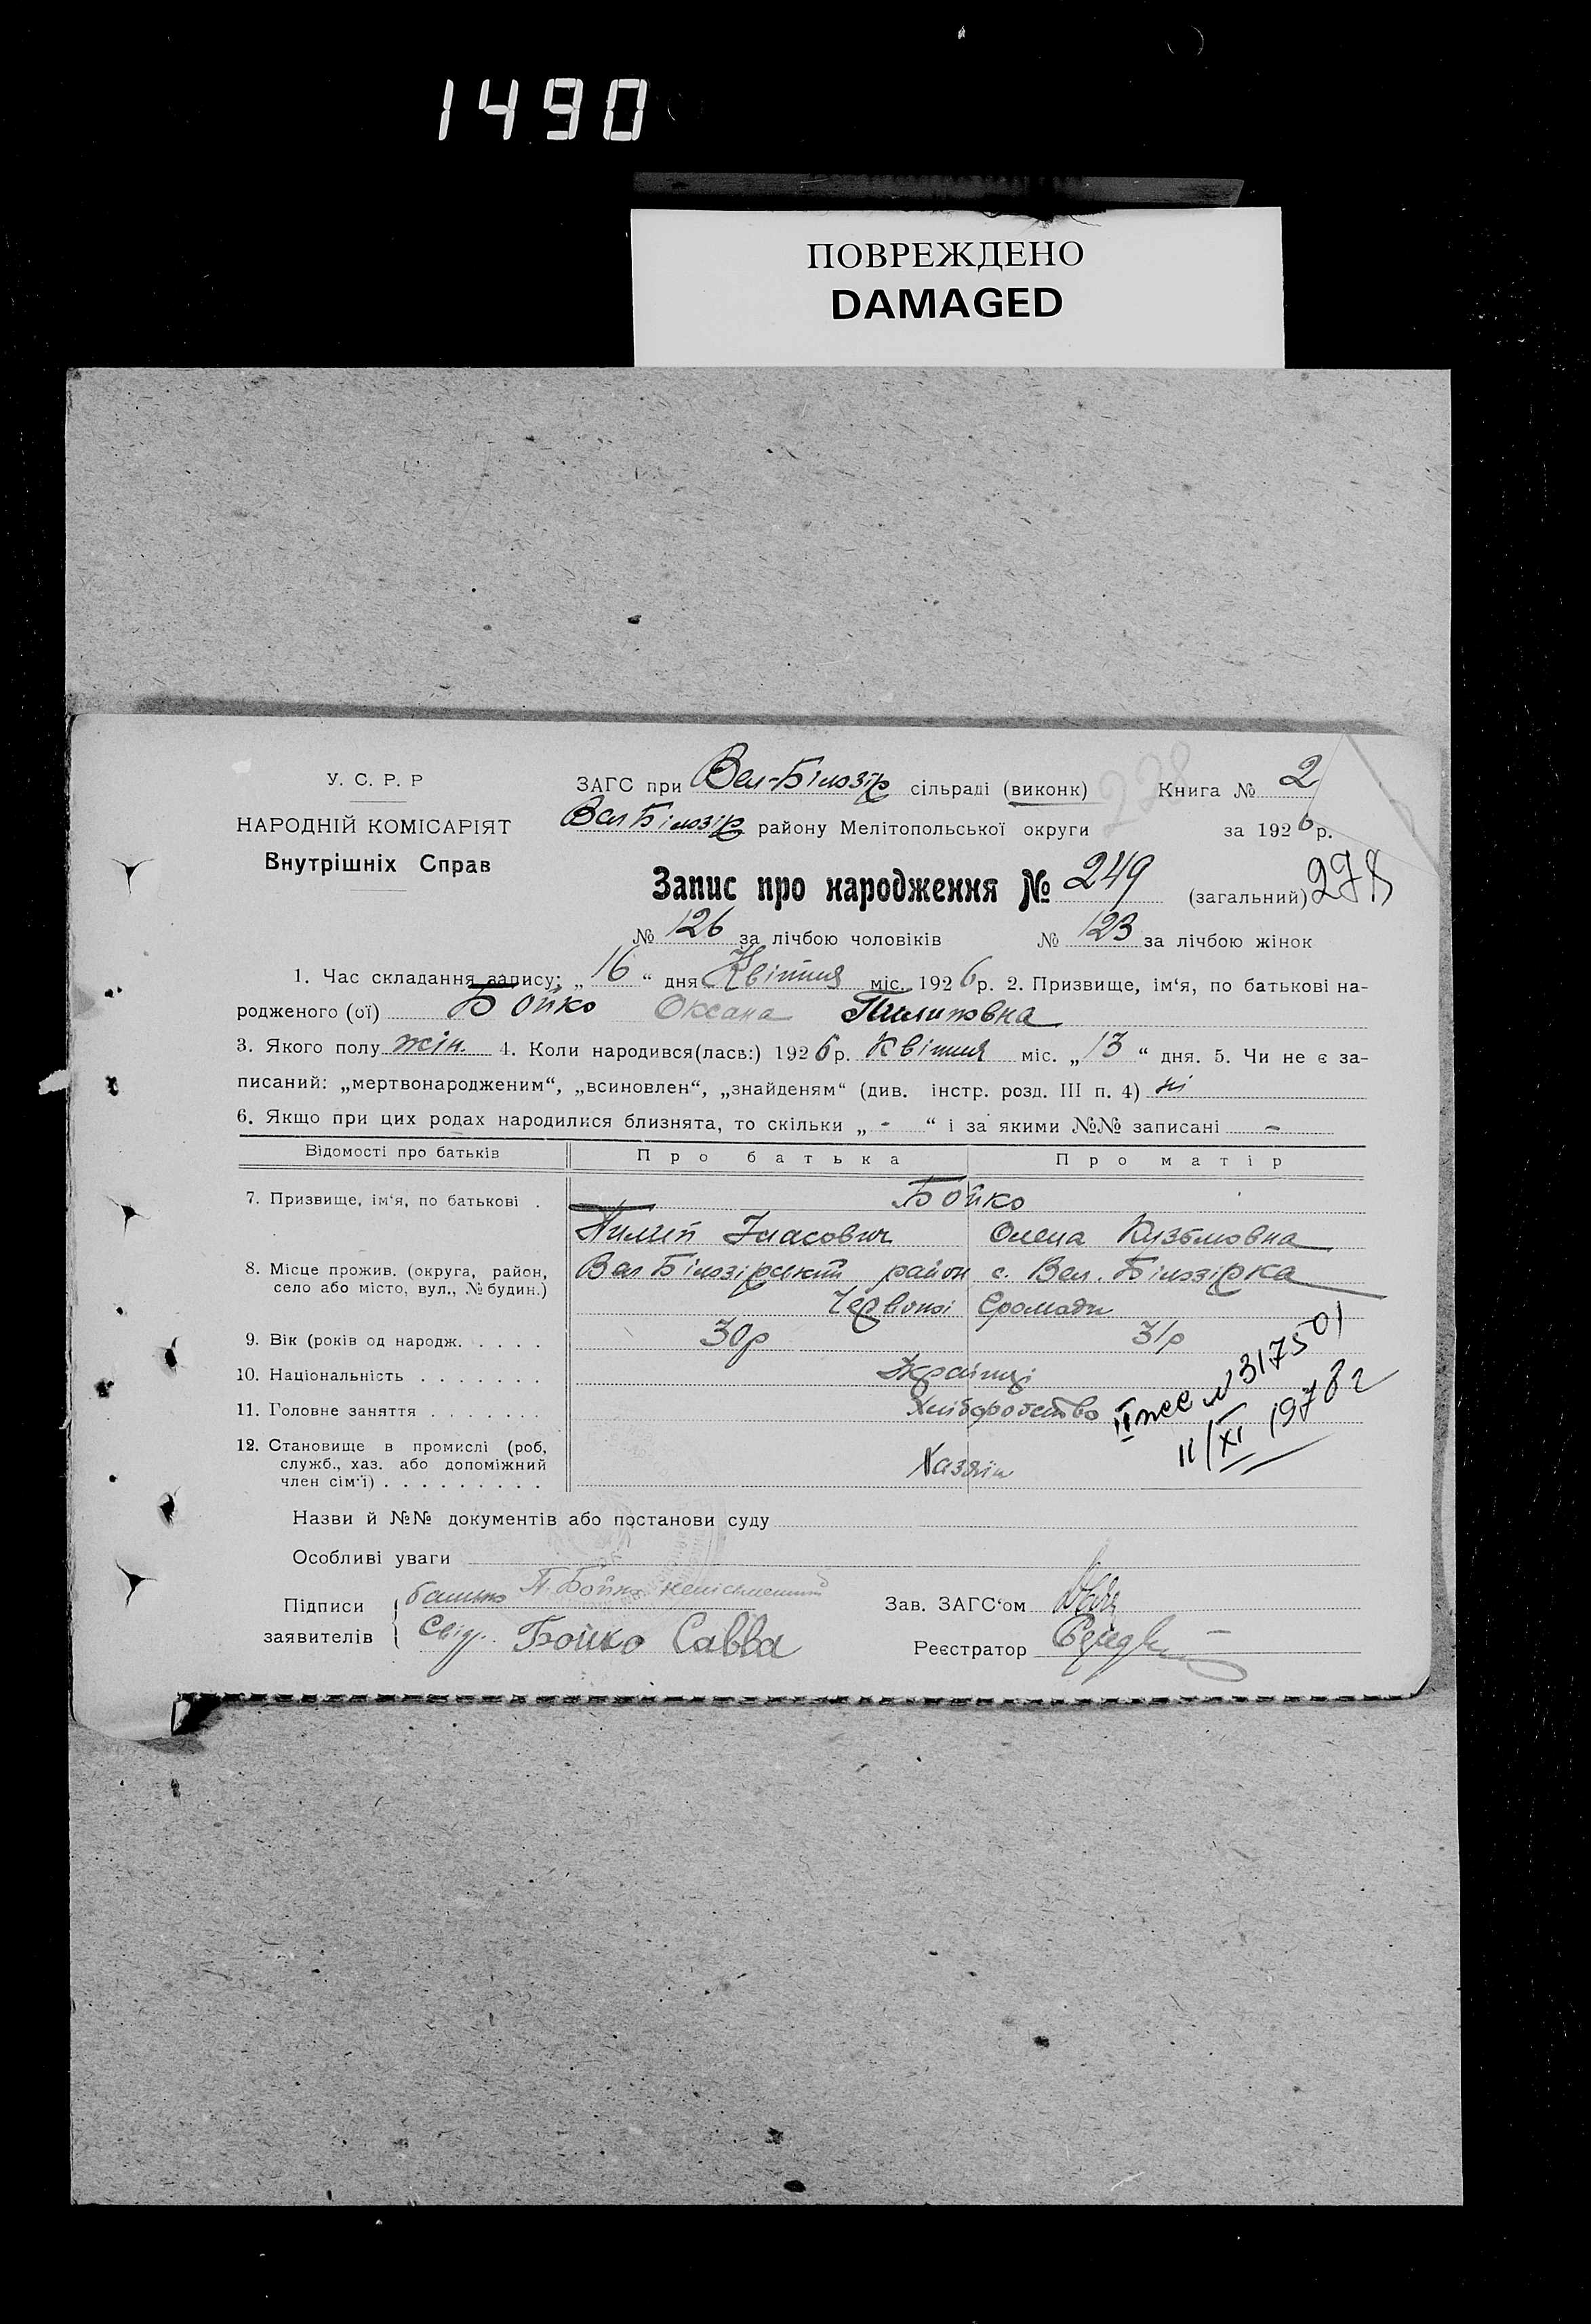 1490
ПОВРЕЖДЕНО
DAMAGED
У. С. Р. Р
НАРОДНІЙ КОМІСАРІЯТ
Внутрішніх Справ
ЗАГС при Вел-Білозір сільраді (виконк) Книга № 2
Вел Білозір району Мелітопольської округи за 1926 р.
Запис про народження № 249 (загальний) 278
№ 126 за лічбою чоловіків № 123 за лічбою жінок
1. Час складання запису: „ 16 “ дня Квітня міс. 1926 р. 2. Призвище, ім‘я, по батькові на-
родженого (ої) Бойко Оксана Пилиповна
3. Якого полу жін. 4. Коли народився(лась:) 1926 р. Квітня міс. „ 13 “ дня. 5. Чи не є за-
писаний: „мертвонародженим“, „всиновлен“, „знайденям“ (див. інстр. розд. III п. 4) ні
6. Якщо при цих родах народилися близнята, то скільки „ - “ і за якими №№ записані -
Відомості про батьків Про батька Про матір
7. Призвище, ім‘я, по батькові . Бойко
Пилип Власович Олена Кузьмовна
8. Місце прожив. (округа, район, село або місто, вул., № будин.) Вел Білозірський район с. Вел. Білозірка
Червоної Громади
9. Вік (років од народж. . . . . 30р 31р
10. Національність . . . . . . . Українці
11. Головне заняття . . . . . . . Хліборобство
12. Становище в промислі (роб, служб., хаз. або допоміжний член сім‘ї) . . . . . . . . . Хазяїн
№ 317501
11/XI 1978 г
Назви й №№ документів або постанови суду
Особливі уваги
Підписи заявителів
батько П. Бойко неписьменний
Свід. Бойко Савва
Зав. ЗАГС‘ом
Реєстратор